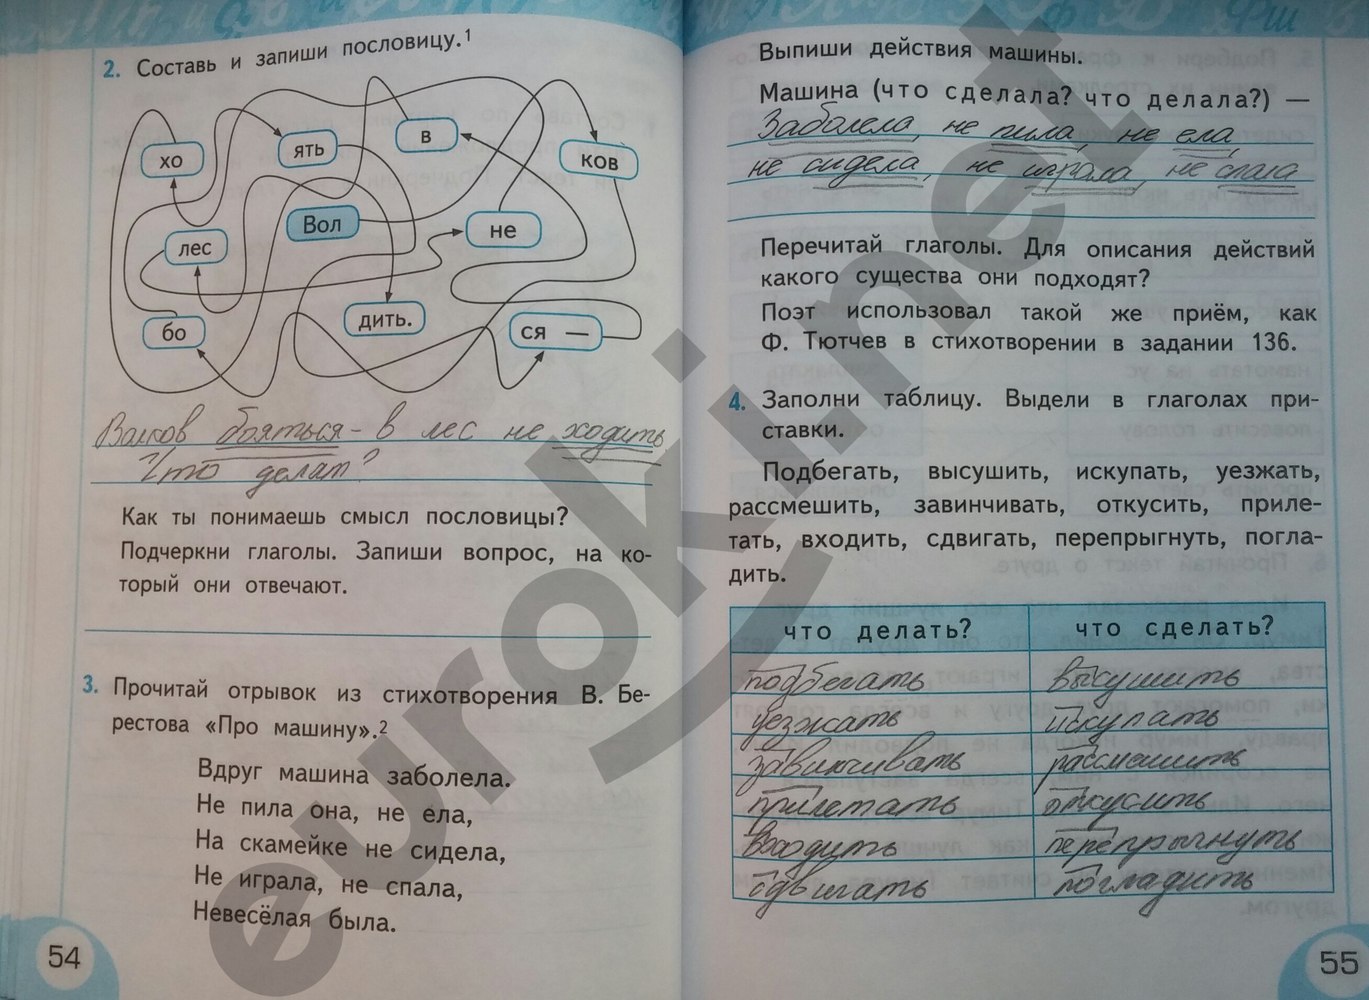 2. Составь и запиши пословицу.1
хо
ять
в
ков
Вол
не
лес
бо
дить.
ся —
Волков бояться - в лес не ходить
Что делат?
Как ты понимаешь смысл пословицы?
Подчеркни глаголы. Запиши вопрос, на ко-
торый они отвечают.
3. Прочитай отрывок из стихотворения В. Бе-
рестова «Про машину».2
Вдруг машина заболела.
Не пила она, не ела,
На скамейке не сидела,
Не играла, не спала,
Невесёлая была.
54
Выпиши действия машины.
Машина (что сделала? что делала?) —
Заболела, не пила, не ела,
не сидела, не играла, не спала
Перечитай глаголы. Для описания действий
какого существа они подходят?
Поэт использовал такой же приём, как
Ф. Тютчев в стихотворении в задании 136.
4. Заполни таблицу. Выдели в глаголах при-
ставки.
Подбегать, высушить, искупать, уезжать,
рассмешить, завинчивать, откусить, приле-
тать, входить, сдвигать, перепрыгнуть, погла-
дить.
что делать? что сделать?
подбегать высушить
уезжать искупать
завинчивать рассмешить
прилетать откусить
входить перепрыгнуть
сдвигать погладить
55
euroki.net